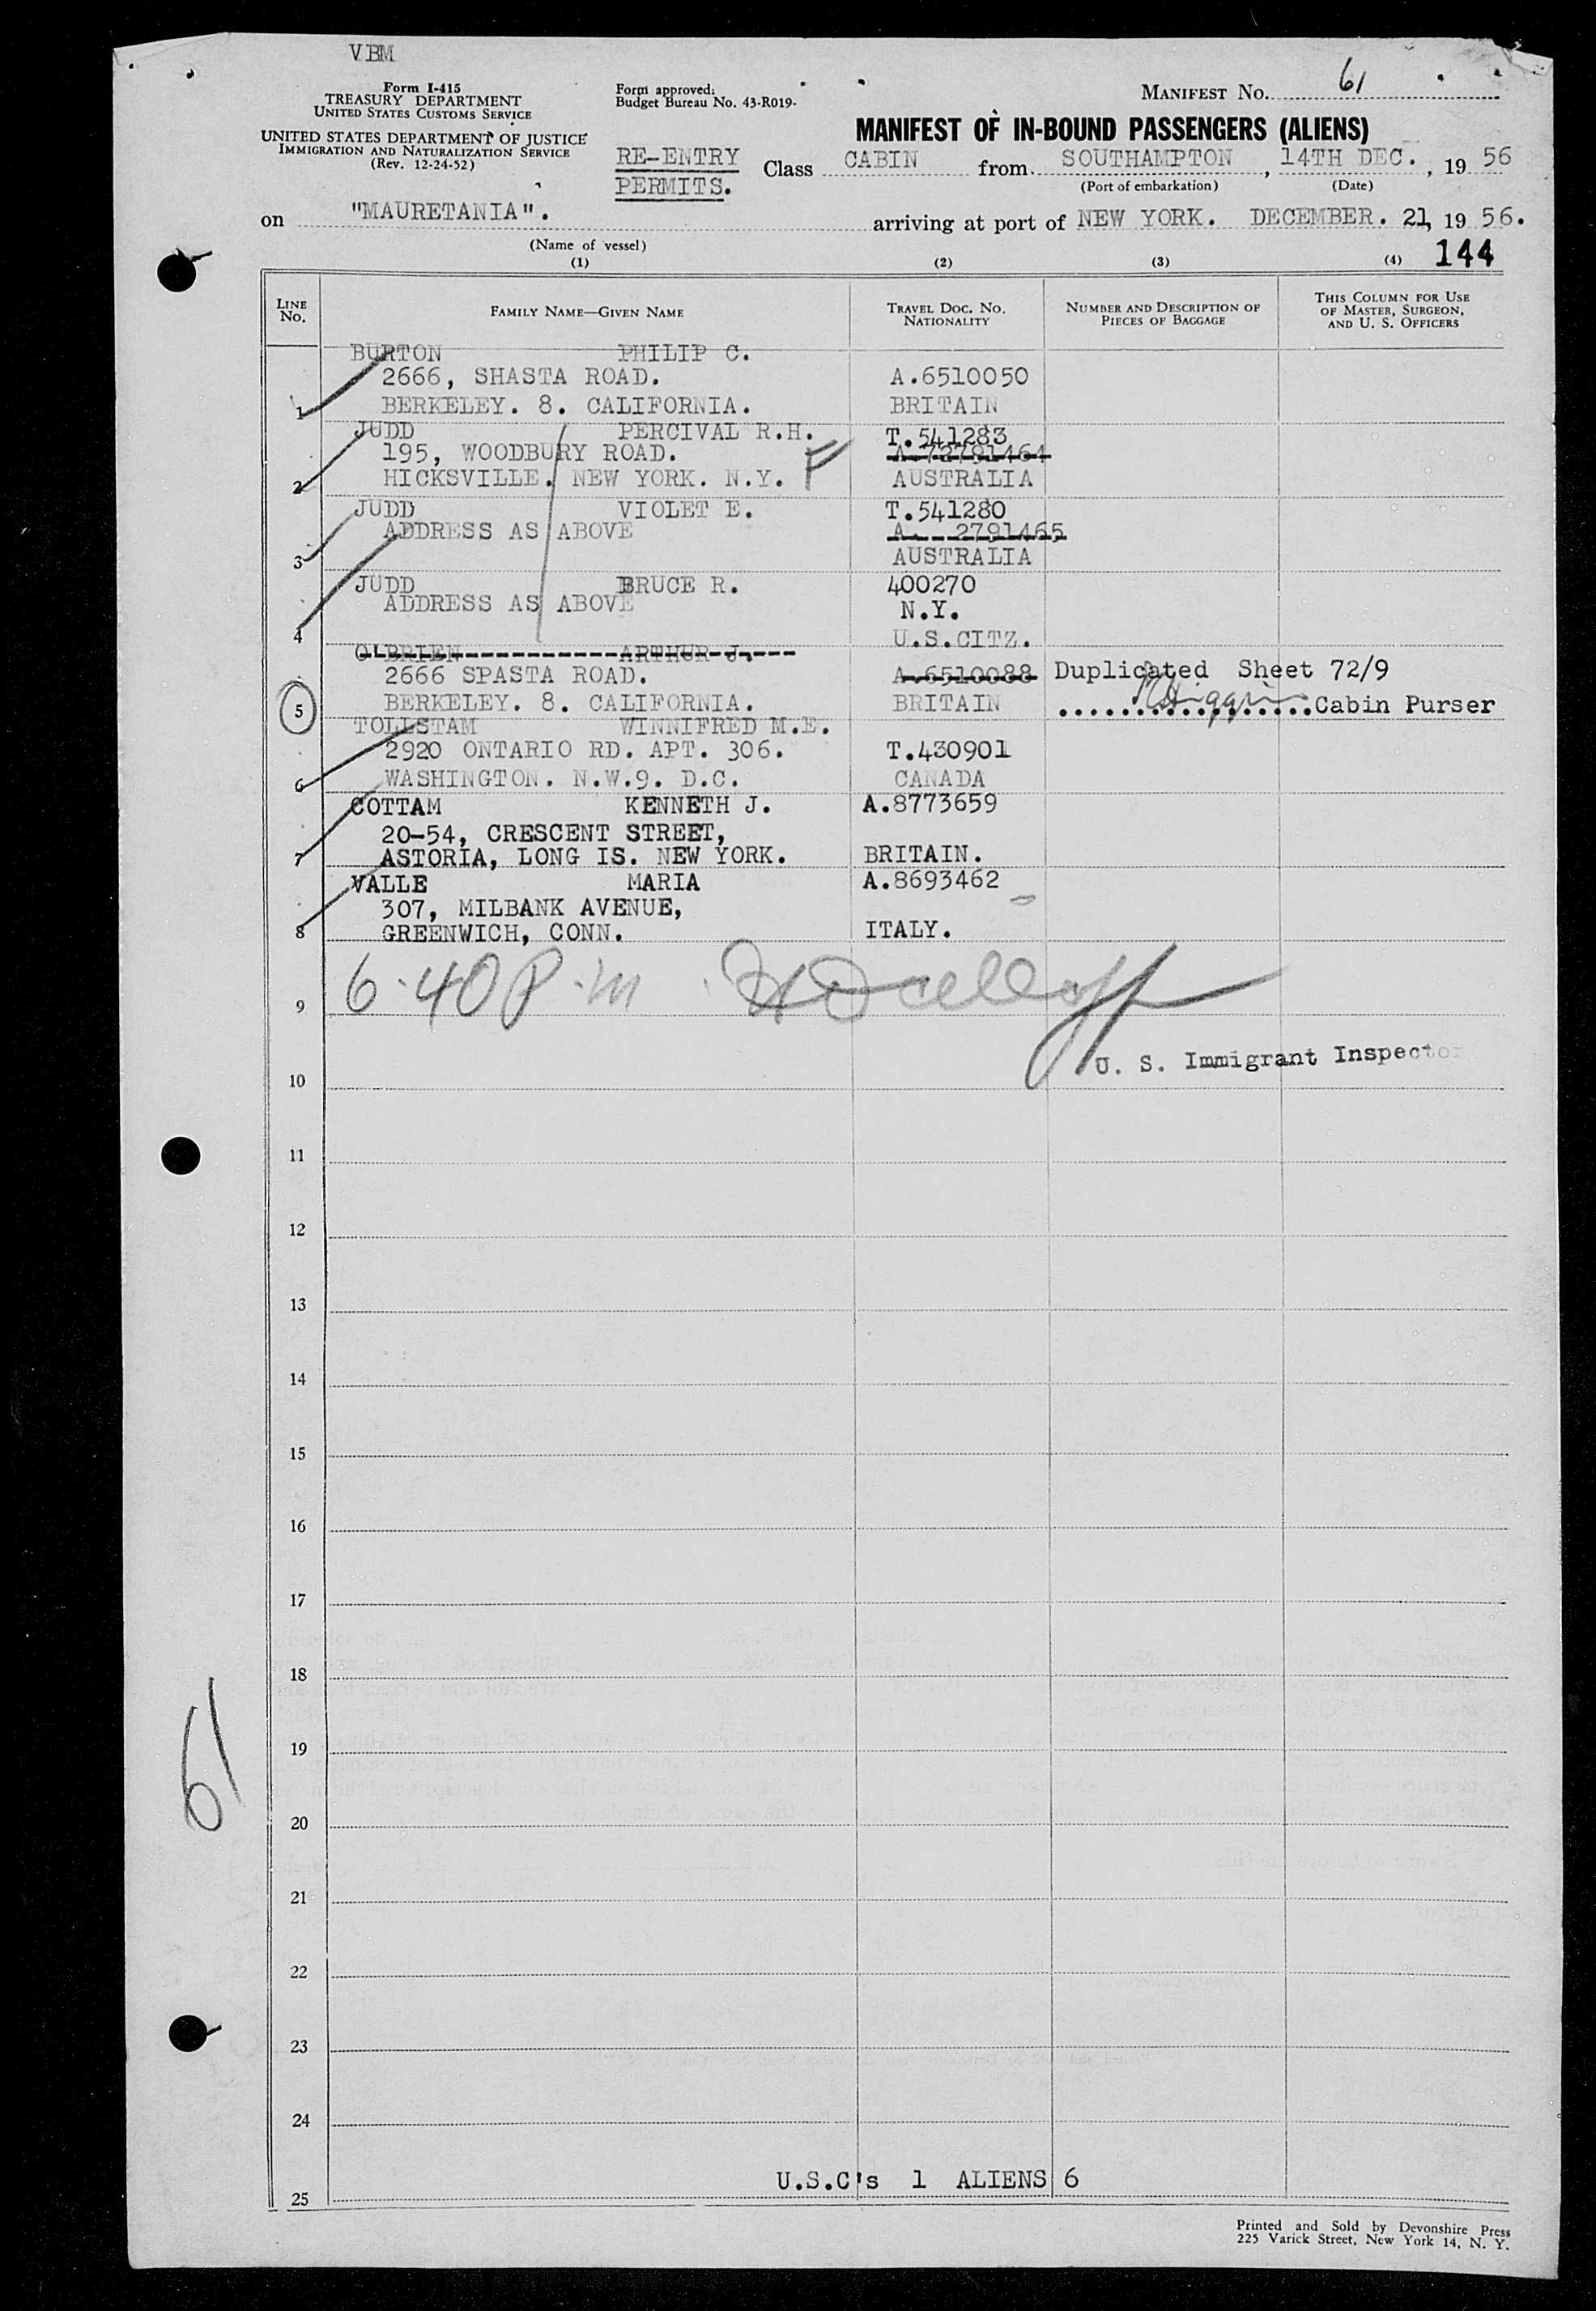 VBM
Form I-415
TREASURY DEPARTMENT
UNITED STATES CUSTOMS SERVICE
UNITED STATES DEPARTMENT OF JUSTICE
IMMIGRATION AND NATURALIZATION SERVICE
(Rev. 12-24-52)
Form approved:
Budget Bureau No. 43-R019-
MANIFEST No. 61
MANIFEST OF IN-BOUND PASSENGERS (ALIENS)
RE-ENTRY PERMITS.
Class CABIN from SOUTHAMPTON, 14TH DEC., 19 56
(Port of embarkation) (Date)
on "MAURETANIA". arriving at port of NEW YORK. DECEMBER. 21, 19 56.
(Name of vessel)
(1) (2) (3) (4) 144
LINE No. FAMILY NAME—GIVEN NAME TRAVEL DOC. NO. NATIONALITY NUMBER AND DESCRIPTION OF PIECES OF BAGGAGE THIS COLUMN FOR USE OF MASTER, SURGEON, AND U. S. OFFICERS
BURTON PHILIP C.
2666, SHASTA ROAD. A.6510050
1 BERKELEY. 8. CALIFORNIA. BRITAIN
JUDD PERCIVAL R.H. T.541283
195, WOODBURY ROAD. A.72791464
2 HICKSVILLE. NEW YORK. N.Y. AUSTRALIA
JUDD VIOLET E. T.541280
ADDRESS AS ABOVE A. 2791465
3 AUSTRALIA
JUDD BRUCE R. 400270
ADDRESS AS ABOVE N.Y.
4 U.S.CITZ.
O'BRIEN ARTHUR J.
2666 SPASTA ROAD. A.6510088 Duplicated Sheet 72/9
5 BERKELEY. 8. CALIFORNIA. BRITAIN Cabin Purser
TOLLSTAM WINNIFRED M.E.
2920 ONTARIO RD. APT. 306. T.430901
6 WASHINGTON. N.W.9. D.C. CANADA
COTTAM KENNETH J. A.8773659
20-54, CRESCENT STREET,
7 ASTORIA, LONG IS. NEW YORK. BRITAIN.
VALLE MARIA A.8693462
307, MILBANK AVENUE,
8 GREENWICH, CONN. ITALY.
9 6.40 P.m.
U. S. Immigrant Inspector
10
11
12
13
14
15
16
17
18
61
19
20
21
22
23
24
U.S.C's 1 ALIENS 6
25
Printed and Sold by Devonshire Press
225 Varick Street, New York 14, N. Y.